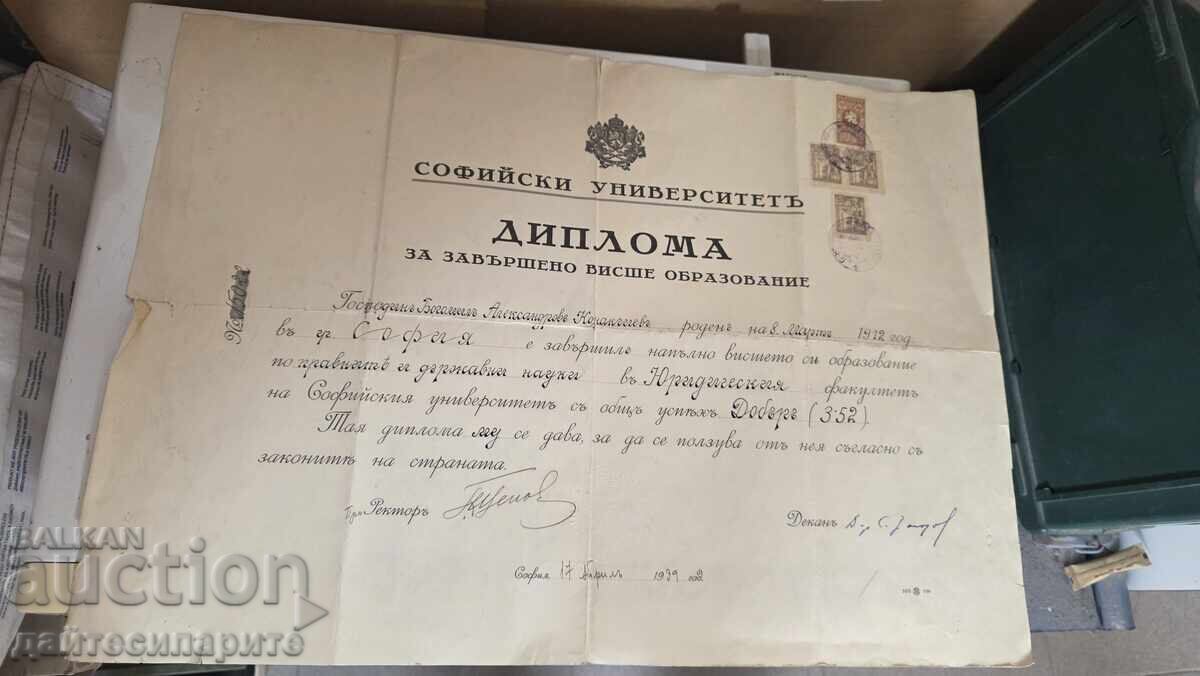 СОФИЙСКИ УНИВЕРСИТЕТЪ
ДИПЛОМА
ЗА ЗАВЪРШЕНО ВИСШЕ ОБРАЗОВАНИЕ
№
Господинъ Богомилъ Александровъ роденъ на 8. Мартъ 1912 год.
въ гр. София е завършилъ напълно висшето си образование
по правнитѣ и държавни науки въ Юридическия факултетъ
на Софийския университетъ съ общъ успѣхъ Добъръ (3·52).
Тая диплома му се дава, за да се ползува отъ нея съгласно съ
законитѣ на страната.
Ректоръ
Деканъ
София 17 Априлъ 1939 год
BALKAN
auction
лайтесипарите